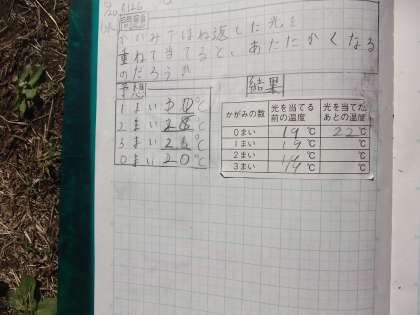 学習問題
かがみではね返した光を
重ねて当てると、あたたかくなる
のだろうか
予想
1まい 20℃
2まい 28℃
3まい ℃
0まい 20℃
結果
かがみの数 光を当てる前の温度 光を当てたあとの温度
0まい 19℃ 22℃
1まい 19℃ ℃
2まい ℃ ℃
3まい 19℃ ℃